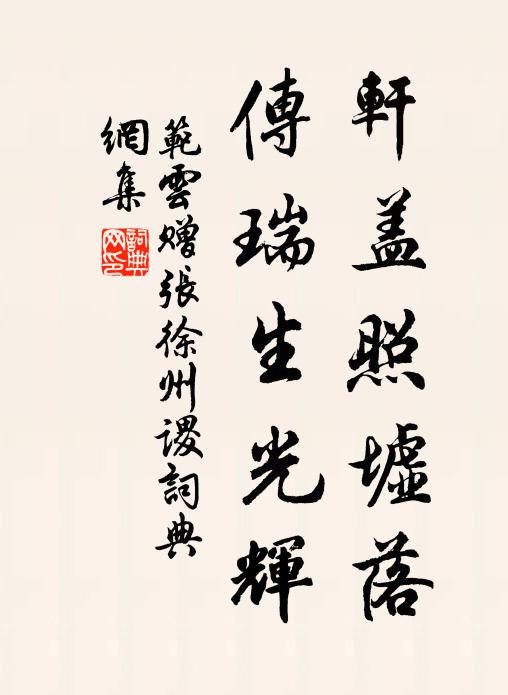 軒盖照墟落
傳瑞生光輝
範雲贈張徐州謖詞典
網集
詞典
网印